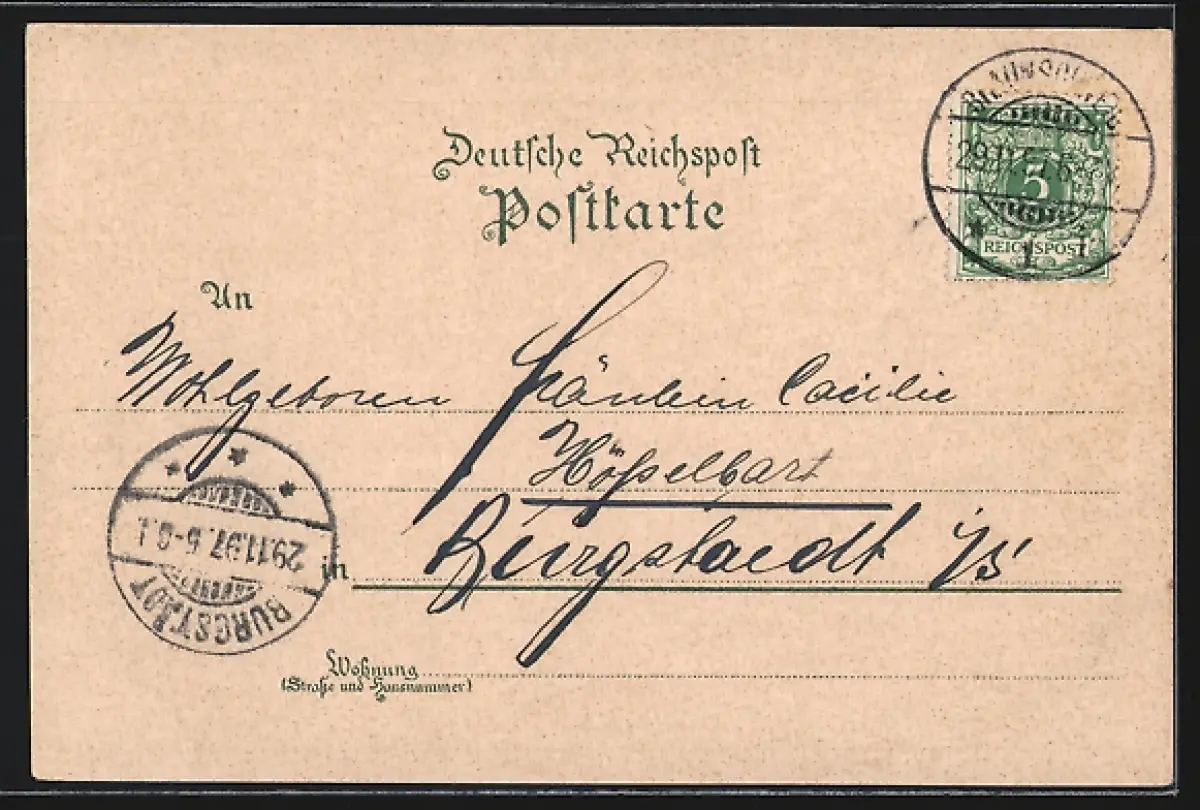 Deutsche Reichspost
Postkarte
BRAUNSCHWEIG
29.11.97.
* 1
5
REICHSPOST
An
Wohlgeboren Fräulein Cäcilie
Hößelbart
in Burgstaedt i/S
BURGSTÄDT
29.11.97. 5-6 N.
Wohnung
(Straße und Hausnummer)